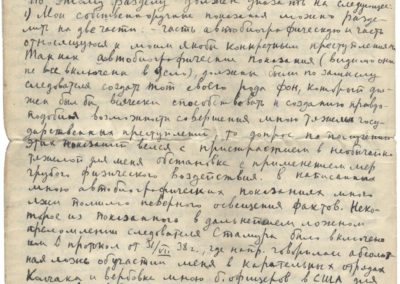 По этому разделу должен указать на следующее:
1) Мои собственноручные показания можно разде-
лить на две части: - часть автобиографическую и часть
относящуюся к моим якобы конкретным преступлениям.
Так как автобиографические показания (видимо они
не все включены в дело), должны были по замыслу
следователя создать тот своего рода фон, который дол-
жен был всячески способствовать к созданию правдо-
подобия возможности совершения мною тяжелых госу-
дарственных преступлений, то допрос на получение
этих показаний велся с пристрастием в необычайно
тяжелой для меня обстановке с применением мер
грубого физического воздействия. В написанных
мною автобиографических показаниях много
лжи помимо неверного освещения фактов. Неко-
торое из показанного в дальнейшем ложном
преломлении следователя Сталмура было включено
им в протокол от 31/VII 38 г., где напр. говорилась абсолют-
ная ложь об участии меня в карательных отрядах
Колчака и вербовке мною б. офицеров в США для